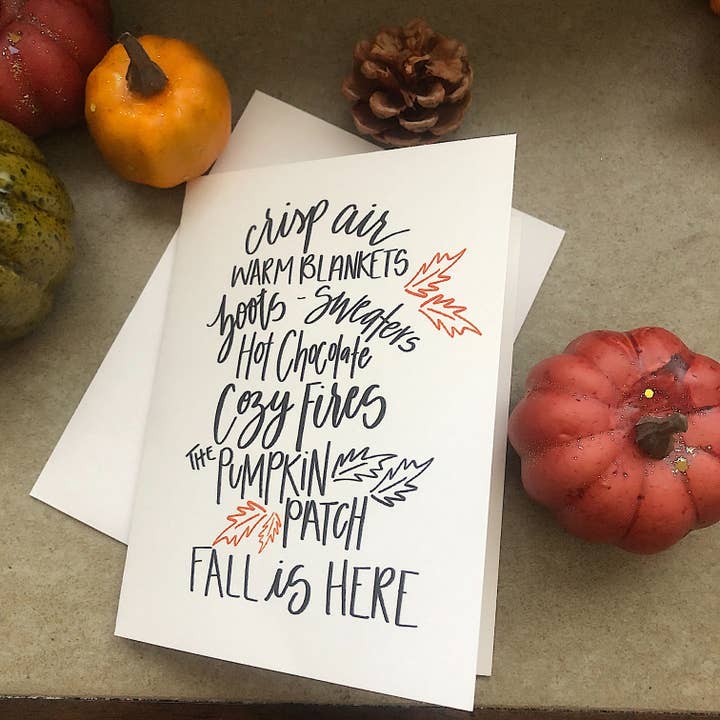 crisp air
WARM BLANKETS
boots - Sweaters
Hot Chocolate
Cozy Fires
THE PUMPKIN
PATCH
FALL is HERE